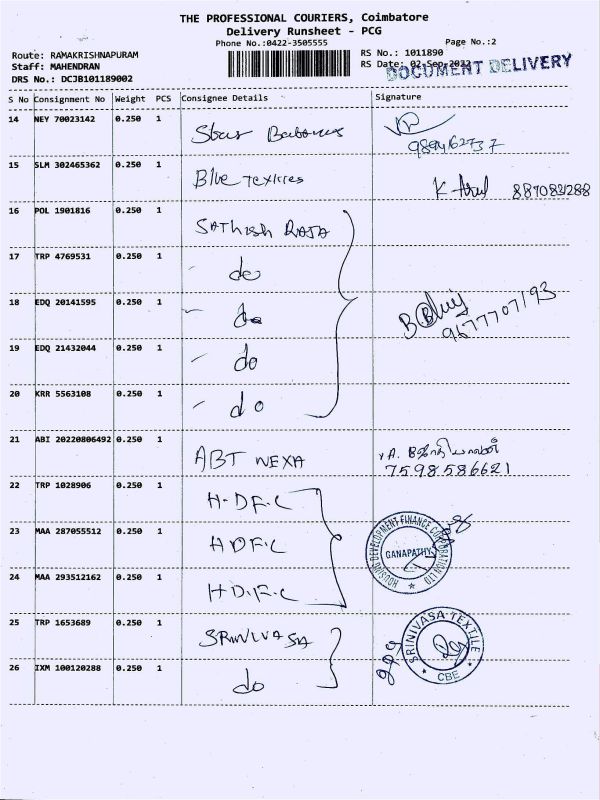 THE PROFESSIONAL COURIERS, Coimbatore
Delivery Runsheet - PCG
Phone No.:0422-3505555
Page No.:2
Route: RAMAKRISHNAPURAM
RS No.: 1011890
Staff: MAHENDRAN
RS Date: 02-Sep-2022
DOCUMENT DELIVERY
DRS No.: DCJB101189002
S No Consignment No Weight PCS Consignee Details Signature
14 NEY 70023142 0.250 1
9894162737
15 SLM 302465362 0.250 1 Blue Textiles
16 POL 1901816 0.250 1 SATHISH RAJA
17 TRP 4769531 0.250 1 - do
18 EDQ 20141595 0.250 1 - do
9677707193
19 EDQ 21432044 0.250 1 - do
20 KRR 5563108 0.250 1 - do
21 ABI 20220806492 0.250 1 ABT NEXA
7598586621
22 TRP 1028906 0.250 1 H.D.F.C
23 MAA 287055512 0.250 1 HDFC
HOUSING DEVELOPMENT FINANCE CORPORATION LTD
GANAPATHY
24 MAA 293512162 0.250 1 H.D.F.C
25 TRP 1653689 0.250 1 SRINIVASA
SRINIVASA TEXTILE
CBE
26 IXM 100120288 0.250 1 do